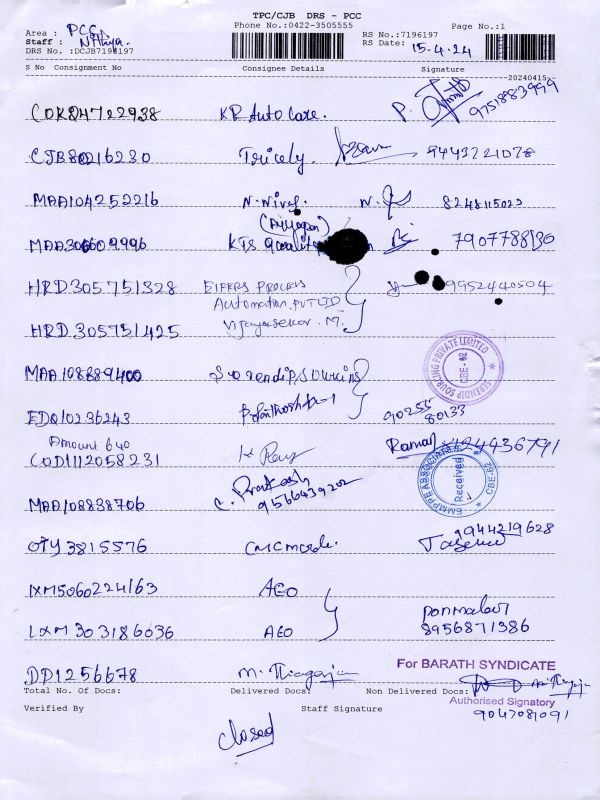 TPC/CJB DRS - PCC
Phone No.:0422-3505555
Page No.:1
Area : PCC
Staff : Nithya.
DRS No. :DCJB7196197
RS No.:7196197
RS Date: 15.4.24
S No Consignment No Consignee Details Signature
20240415
COK84722938 KR Auto Care. P. 9751883999
CJB80216230 Tricely. 9443721078
MAA104252216 N. Nivas. N. 8248115023
MAA306609996 KTS quality 7907788130
HRD305751328 EIFERS PROCESS 9952440504
Automation. PVT LTD
HRD.305751425 Vijayasekar. M.
SERENDIP SOURCING PRIVATE LIMITED
CBE - 62
MAA108889400 Serendip Sourcing
EDQ10236243 90255 80133
Amount 640
COD1112058231 K Ramy Raman 9194436791
EMMPPE ASSOCIATES
Received
CSE-62
MAA108838706 C. Prakash 9566439202
OTY3815576 CMC mode. 9944219628
IXM5060224163 AEO
LXM303186036 AEO Ponmalar 8956871386
DP1256678 M. Thiagaraja
For BARATH SYNDICATE
Total No. Of Docs: Delivered Docs: Non Delivered Docs:
Authorised Signatory
Verified By Staff Signature 9047081091
closed